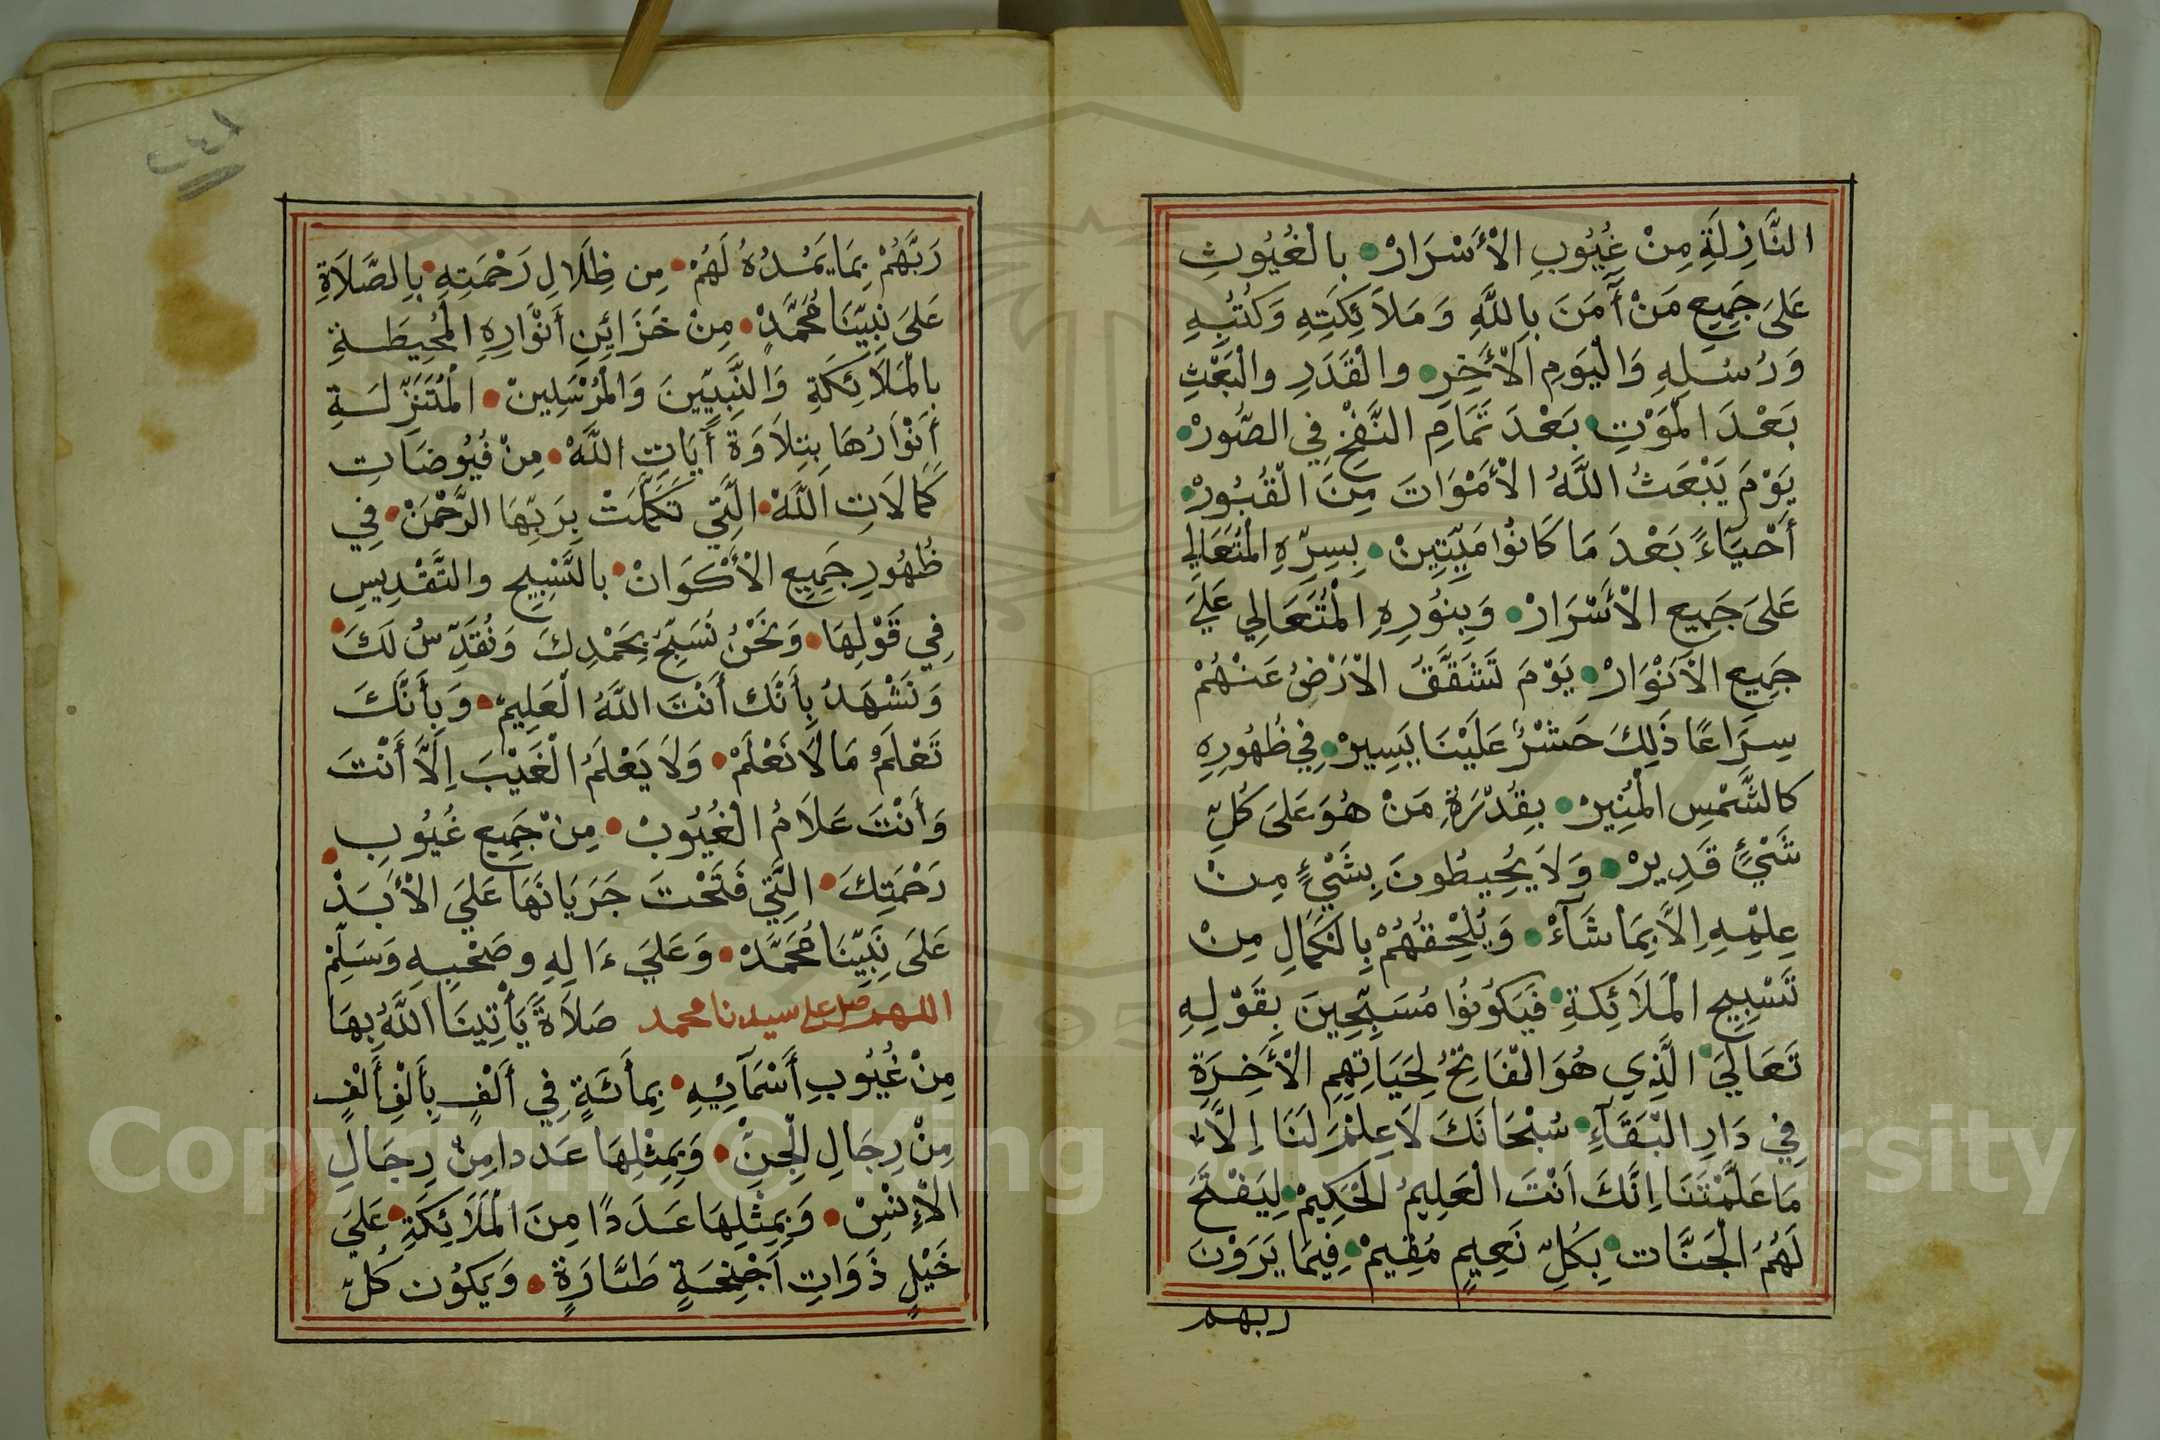 النَّازِلَةِ مِنْ غُيُوبِ الْأَسْرَارْ بالْغُيُوثِ
عَلَىَ جَمِيعِ مَنْ آمَنَ بِاللَّهِ وَمَلاَئِكَتِهِ وَكُتُبِهِ
وَرُسُلِهِ وَالْيَوْمِ الْأَخِرِ والْقَدَرِ والْبَعْثِ
بَعْدَ الْمَوْتِ بَعْدَ تَمَامِ النَّفْخِ فِي الصُّورْ
يَوْمَ يَبْعَثُ اللَّهُ الْأَمْوَاتَ مِنَ الْقُبُورْ
أَحْيَآءً بَعْدَ مَا كَانُوا مَيِّتِينْ بِسِرِّهِ الْمُتَعَالِي
عَلىَ جَمِيعِ الْأَسْرَارْ وَبِنُورِهِ الْمُتَعَالِي عَلَيَ
جَمِيعِ الْأَنْوَارْ يَوْمَ تَشَقَّقُ الْأَرْضُ عَنْهُمْ
سِرَاعًا ذَلِكَ حَشْرٌ عَلَيْنَا يَسِيرْ فِي ظُهُورِهِ
كالشَّمْسِ الْمُنِيرْ بِقُدْرَةِ مَنْ هُوَ عَلَىَ كُلِّ
شَيْءٍ قَدِيرْ وَلاَ يُحِيطُونَ بِشَيْءٍ مِنْ
عِلْمِهِ اِلاَّ بِمَا شَآءْ وَيُلْحِقُهُمْ بِالْكَمَالِ مِنْ
تَسْبِيحِ الْمَلَائِكَةِ فَيَكُونُوا مُسَبِّحِينَ بِقَوْلِهِ
تَعَالَيَ الَّذِي هُوَ الْفَاتِحُ لِحَيَاتِهِمِ الْأَخِرَةِ
فِي دَارِ الْبَقَآءِ سُبْحَانَكَ لاَ عِلْمَ لَنَا إِلاَّ
مَا عَلَّمْتَنَا اِنَّكَ اَنْتَ الْعَلِيمُ الْحَكِيمْ لِيَفْتَحَ
لَهُمُ الْجَنَّات بِكُلِّ نَعِيمٍ مُقِيمْ فِيمَا يَرَوْنَ
ربهم
رَبَّهُمْ بِمَا يَمُدُهُ لَهُمْ مِن ظِلَالِ رَحْمَتِهِ بِالصَّلَاةِ
عَلَىَ نَبِيِّنَا مُحَمَّدْ مِنْ خَزَائِنِ أَنْوَارِهِ الْمُحِيطَةِ
بِالْمَلَائِكَةِ وَالنَّبِيِّينَ وَالْمُرْسَلِينْ الْمُتَنَزِّلَةِ
أَنْوَارُهَا بِتِلَاوَةِ آيَاتِ اللَّهْ مِنْ فُيُوضَاتِ
كَمَالَاتِ اللَّهْ الَّتِي تَكَمَّلَتْ بِرَبِّهَا الرَّحْمَنْ فِي
ظُهُورِ جَمِيعِ الْأَكْوَانْ بالتَّسْبِيحِ والتَّقْدِيسِ
فِي قَوْلِهَا وَنَحْنُ نُسَبِّحُ بِحَمْدِكَ وَنُقَدِّسُ لَكَ
وَنَشْهَدُ بِأَنَّكَ أَنْتَ اللَّهُ الْعَلِيمُ وَبِأَنَّكَ
تَعْلَمُ مَا لَا نَعْلَمْ وَلاَ يَعْلَمُ الْغَيْبَ اِلاَّ أَنْتَ
وَأَنْتَ عَلَامُ الْغُيُوبْ مِنْ جَمِيعِ غُيُوبِ
رَحْمَتِكَ الَّتِي فَتَحْتَ جَرَيَانَهَا عَلَيَ الْأَبَدْ
عَلَىَ نَبِيِّنَا مُحَمَّدْ وَعَلَيَ ءَالِهِ وصَحْبِهِ وَسَلِّمْ
اللهم صل على سيدنا محمد صَلاَةً يَأْتِينَا اللَّهُ بِهَا
مِنْ غُيُوبِ أَسْمَآئِهِ بِمِأَئَةٍ فِي أَلْفٍ بِأَلْفِ أَلْفٍ
مِنْ رِجَالِ الْجِنّْ وَبِمِثْلِهَا عَددا مِنْ رِجَالِ
الْإِنْسْ وَبِمِثْلِهَا عَدَدًا مِنَ الْمَلَائِكَةِ عَلَيَ
خَيْلٍ ذَوَاتِ اَجْنِحَةٍ طَيَّارَةٍ وَيَكُون كُلّ